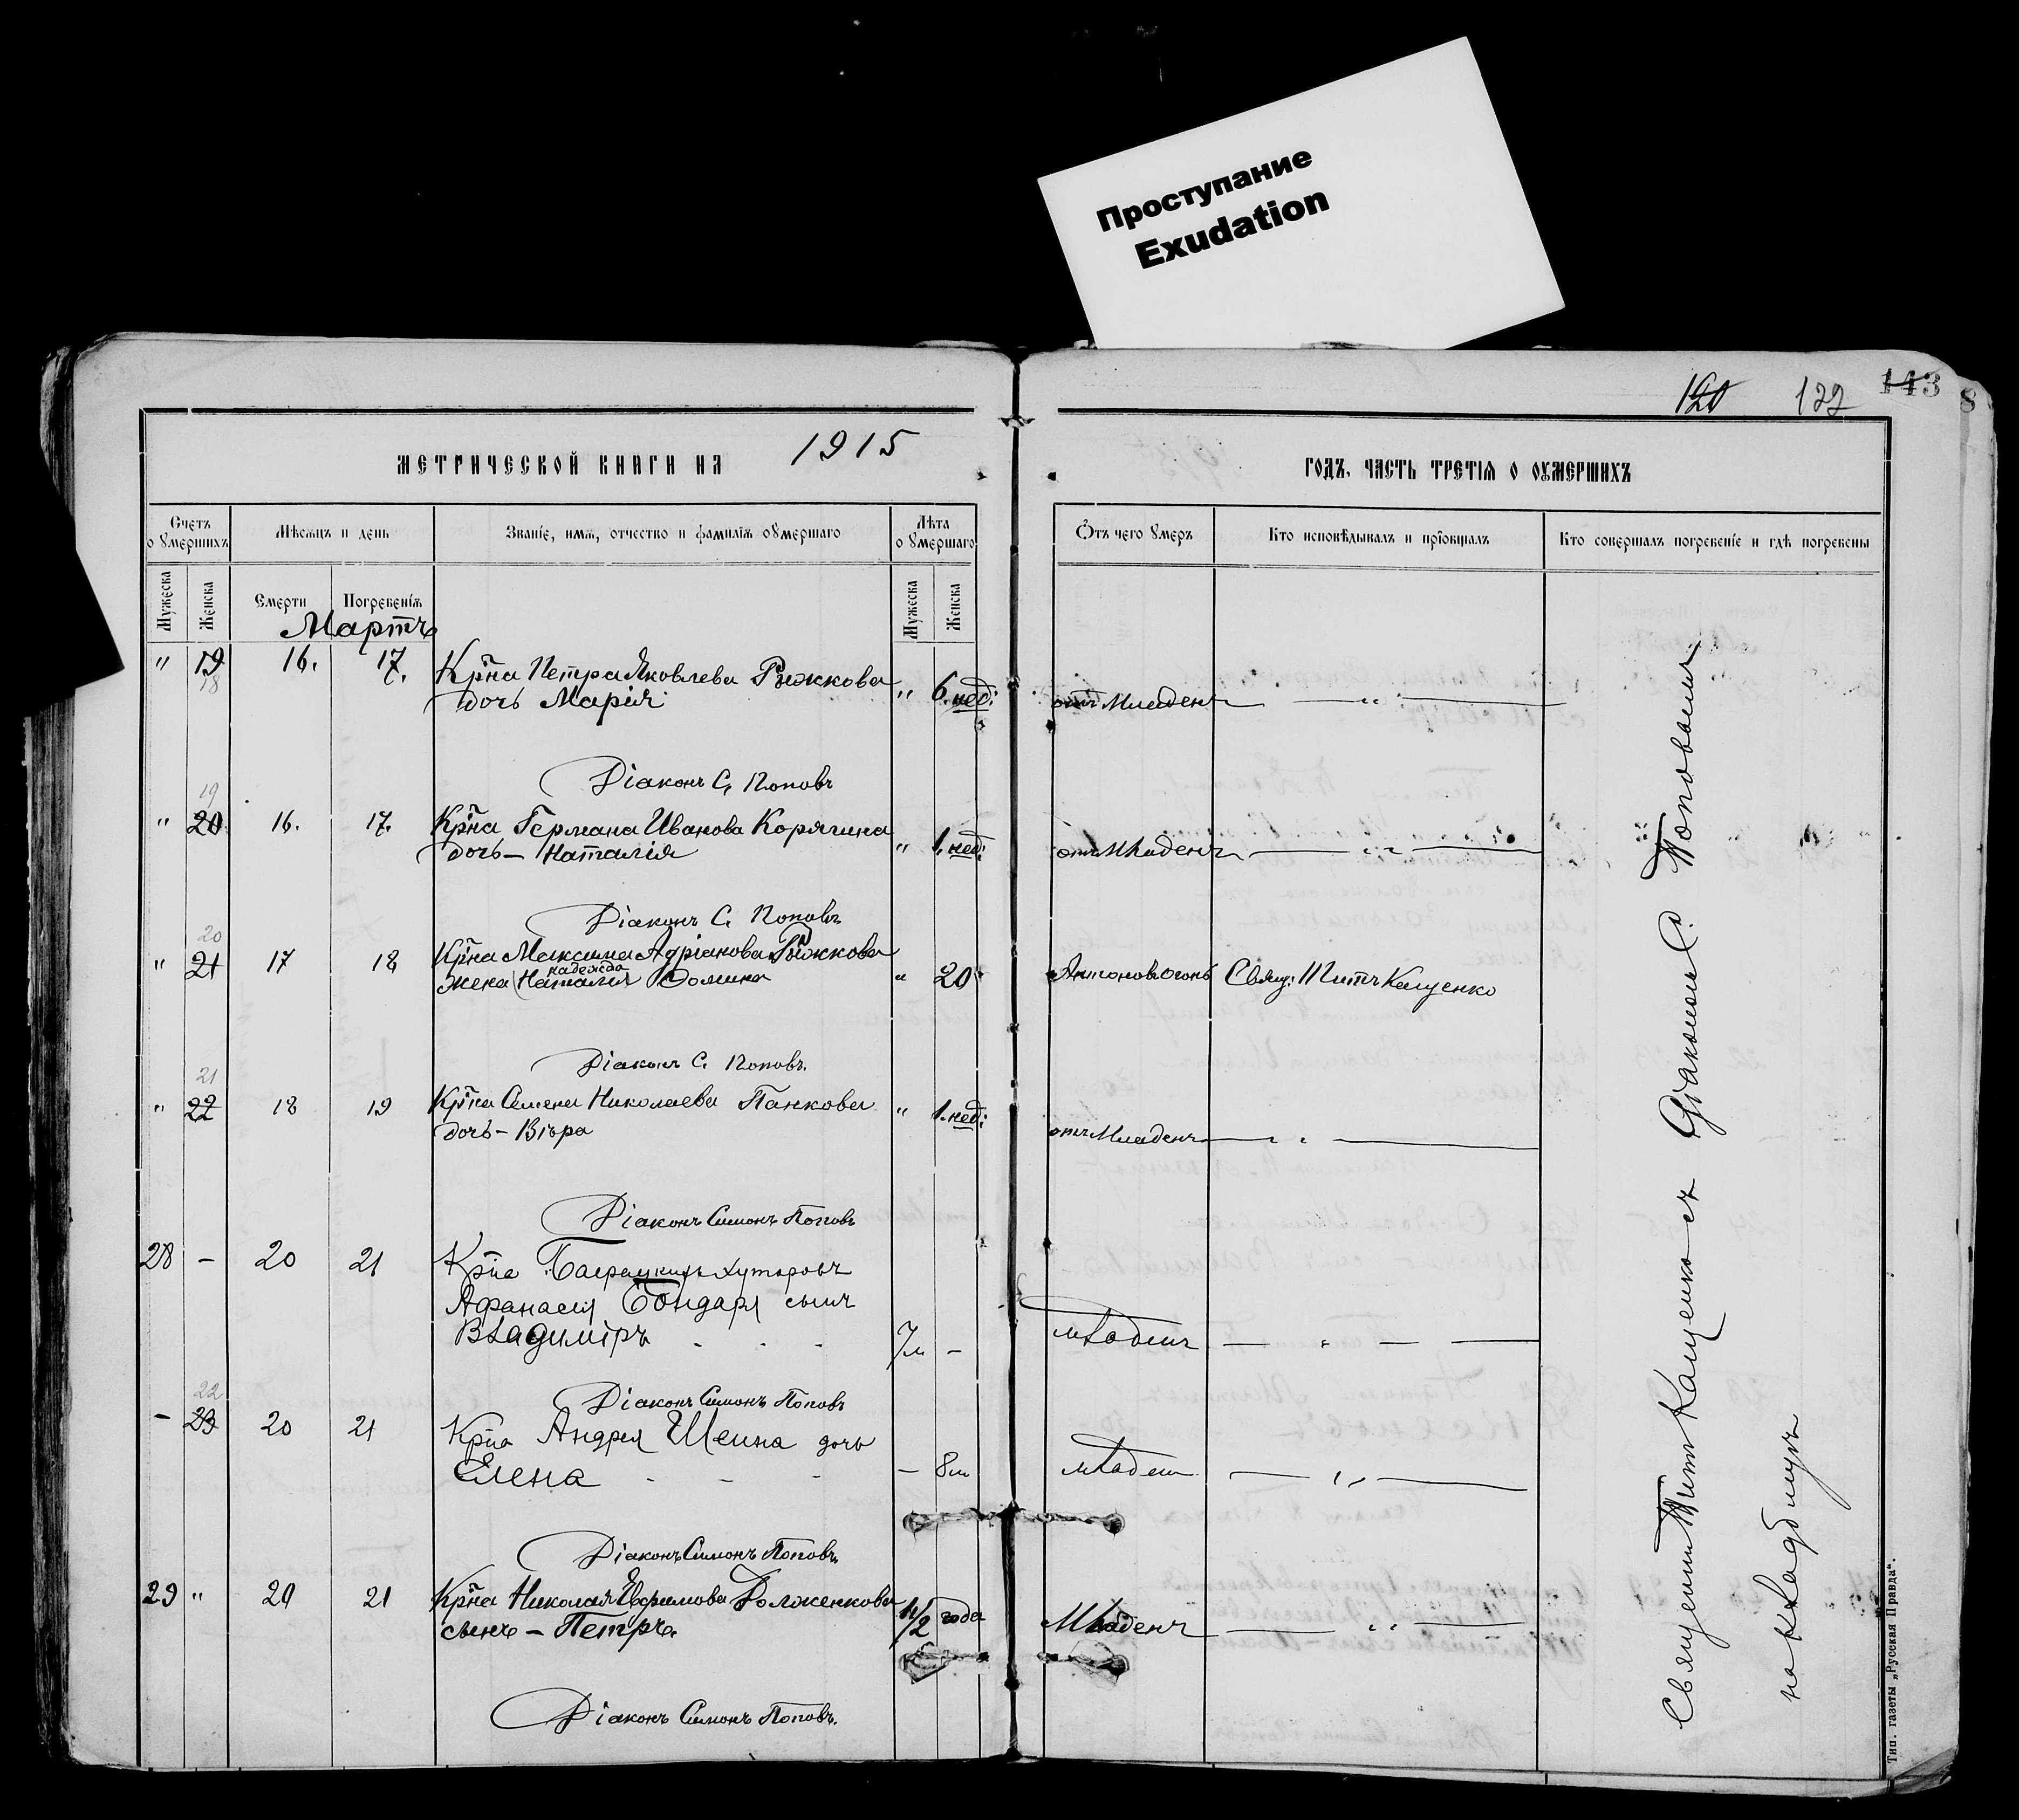 Проступание
Exudation
120 122 143 8
МЕТРИЧЕСКОЙ КНИГИ НА 1915 ГОДЪ, ЧАСТЬ ТРЕТІЯ О ОУМЕРШИХЪ
Счетъ о умершихъ
Мѣсяцъ и день
Званіе, имя, отчество и фамилія оумершаго
Лѣта о умершаго
Отъ чего умеръ
Кто исповѣдывалъ и пріобщалъ
Кто совершалъ погребеніе и гдѣ погребены
Мужеска Женска Смерти Погребенія Мужеска Женска
Мартъ
" 19 16. 17. Крⷭ҇на Петра Яковлева Рыжкова
18
дочь Марія " 6 нед: отъ Младенч — " —
Діаконъ С. Поповъ
19
" 20 16. 17. Кр-на Германа Иванова Корягина
дочь – Наталія " 1. нед: отъ Младенч — " —
Діаконъ С. Поповъ
20
" 21 17 18 Кр-на Максима Адріанова Рыжкова
надежда
жена (Наталия " 20 Антоновъ огонь Свящ: Титъ Кащенко
Діаконъ С. Поповъ.
21
" 22 18 19 Кр-на Семена Николаева Панкова
дочь – Вѣра " 1. нед: отъ Младенч — " —
Діаконъ Симонъ Поповъ
28 – 20 21 Кр-на хуторовъ
Афанасія Бондаря сынъ
Владиміръ 7м – младенч — " —
Діаконъ Симонъ Поповъ
22
– 23 20 21 Кр-на Андрея Шеина дочь
Елена – 8м младен — " —
Діаконъ Симонъ Поповъ
29 " 20 21 Кр-на Николая Ефимова Долженкова
сынъ – Петръ. 1/2 года Младенч — " —
Діаконъ Симонъ Поповъ.
Священник Титъ Кащенко съ Діакономъ С. Поповымъ
на кладбищѣ
Тип. газеты „Русская Правда“.